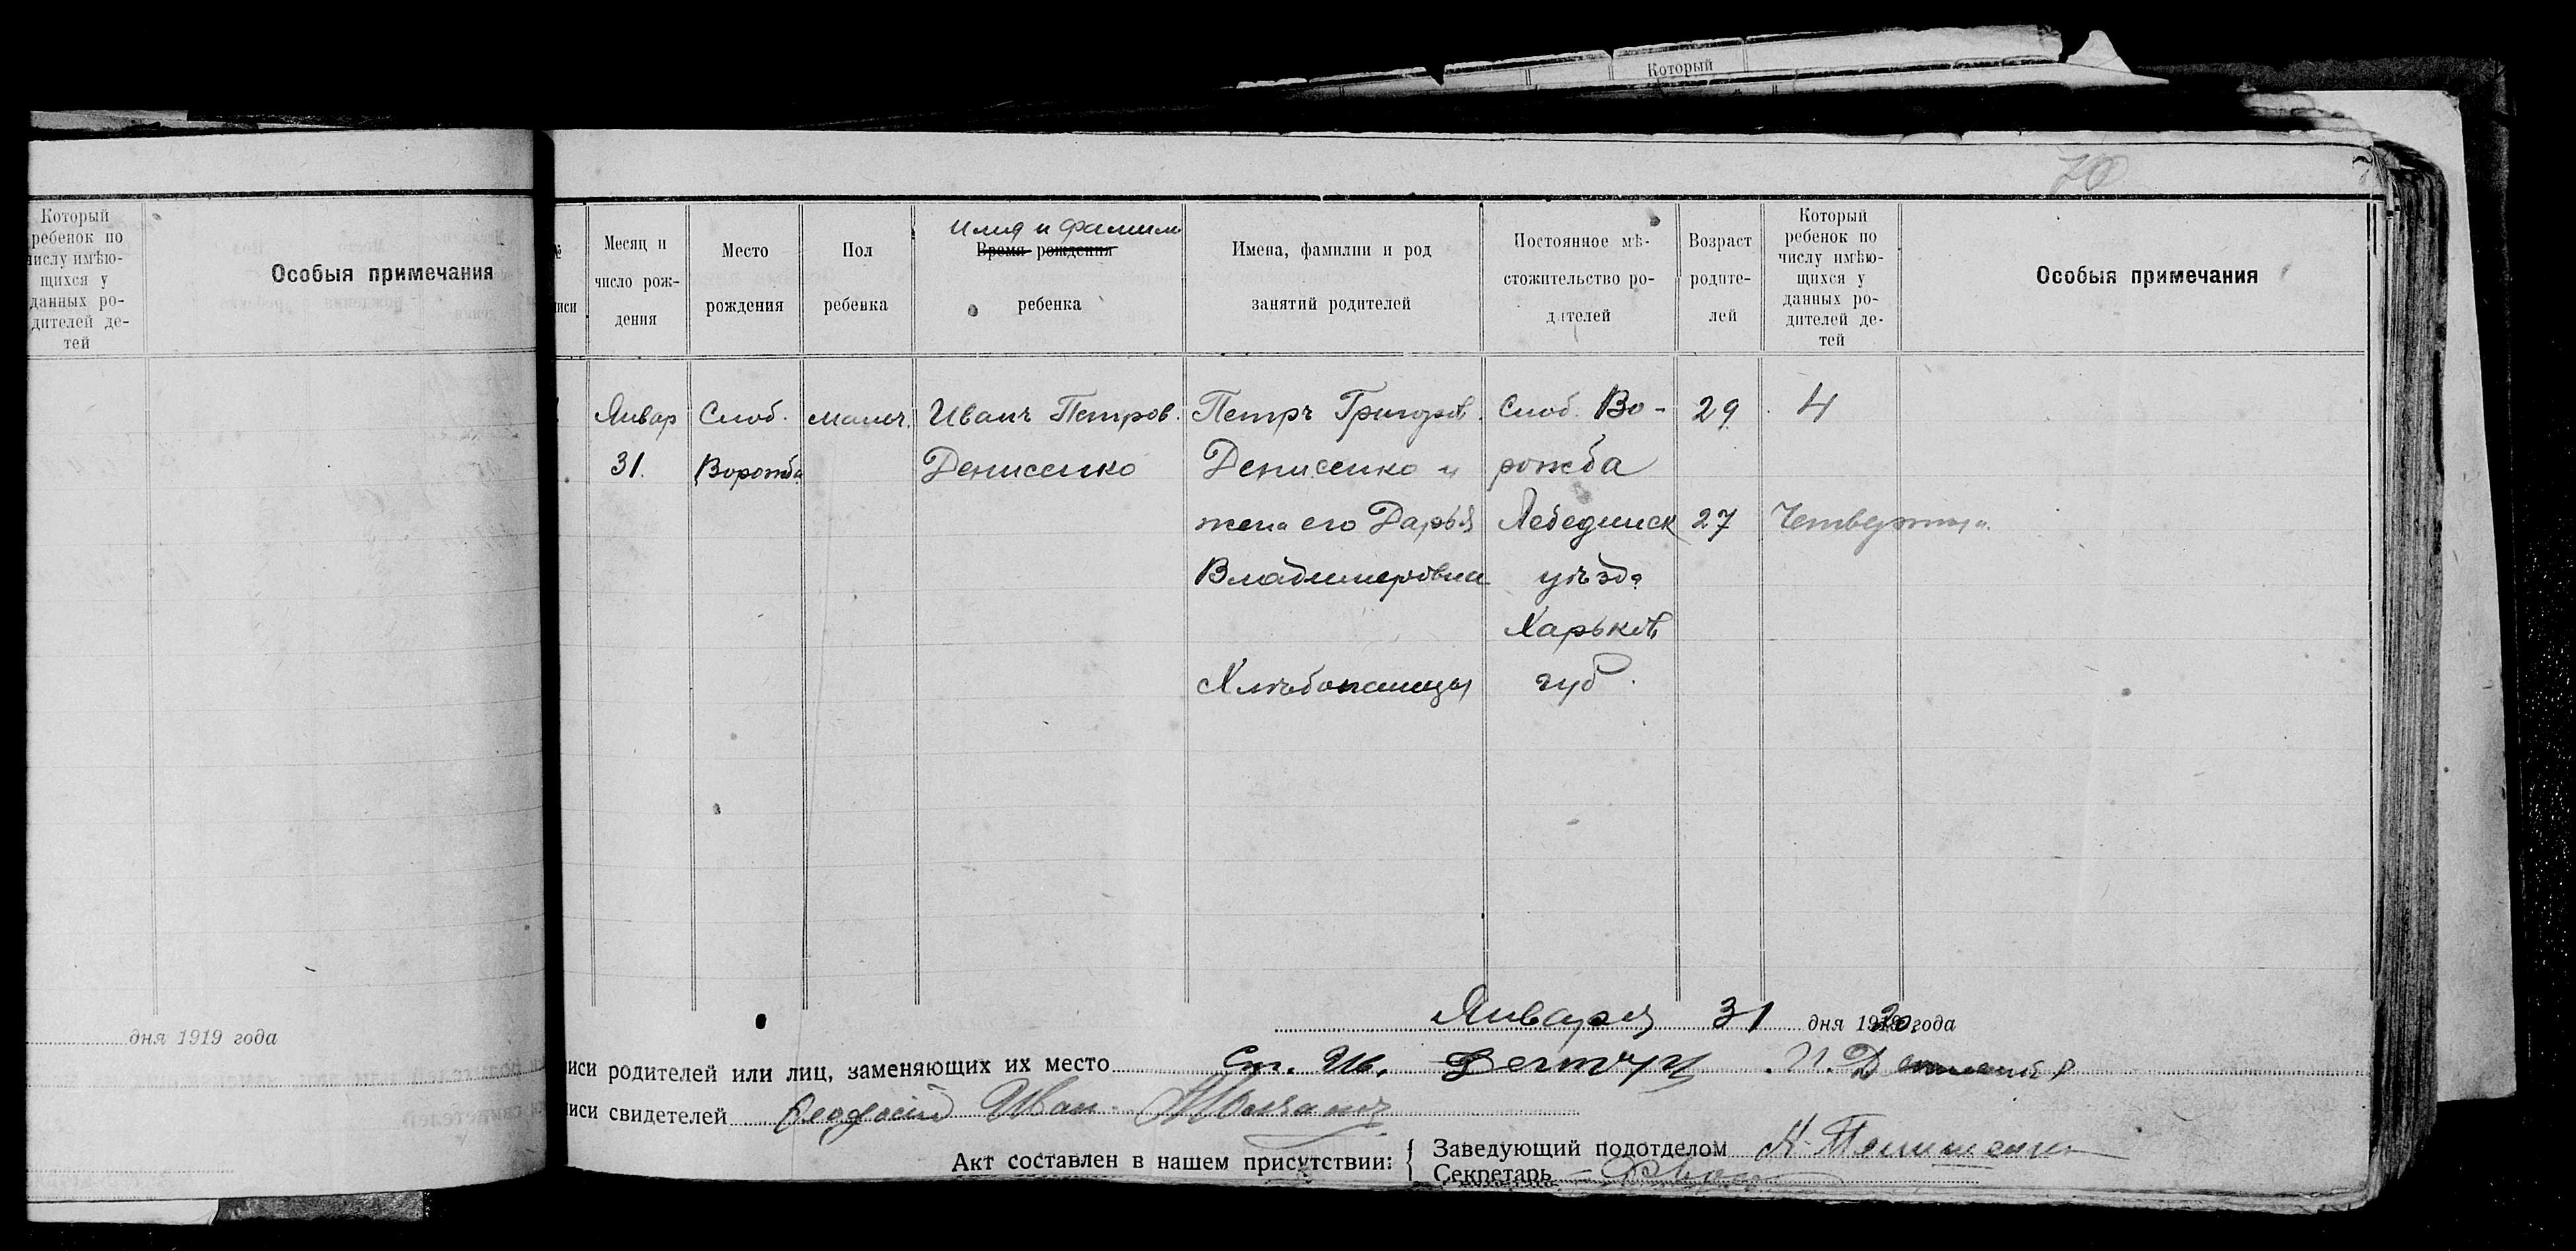 Который
70
Который
ребенок по
числу имѣю-
щихся у
данных ро-
дителей де-
тей
Особыя примечания
дня 1919 года
№
иси
Месяц и
число рож-
дения
Место
рождения
Пол
ребенка
Имя и фамилия
Время рождения
ребенка
Имена, фамилии и род
занятий родителей
Постоянное мѣ-
стожительство ро-
дителей
Возраст
родите-
лей
Который
ребенок по
числу имѣю-
щихся у
данных ро-
дителей де-
тей
Особыя примечания
Январ
31.
Слоб.
Ворожба
мальч.
Иванъ Петров.
Денисенко
Петръ Григоров.
Денисенко и
жена его Дарья
Владимеровна
Хлѣбопашцы
Слоб. Во-
рожба
Лебединск
уѣзда
Харьков
губ.
29
27
4
Четвертый
Января 31 дня 1920 года
иси родителей или лиц, заменяющих их место Ст. Ив.
иси свидетелей Феодосій Иван.
Акт составлен в нашем присутствии:
Заведующий подотделом К.
Секретарь